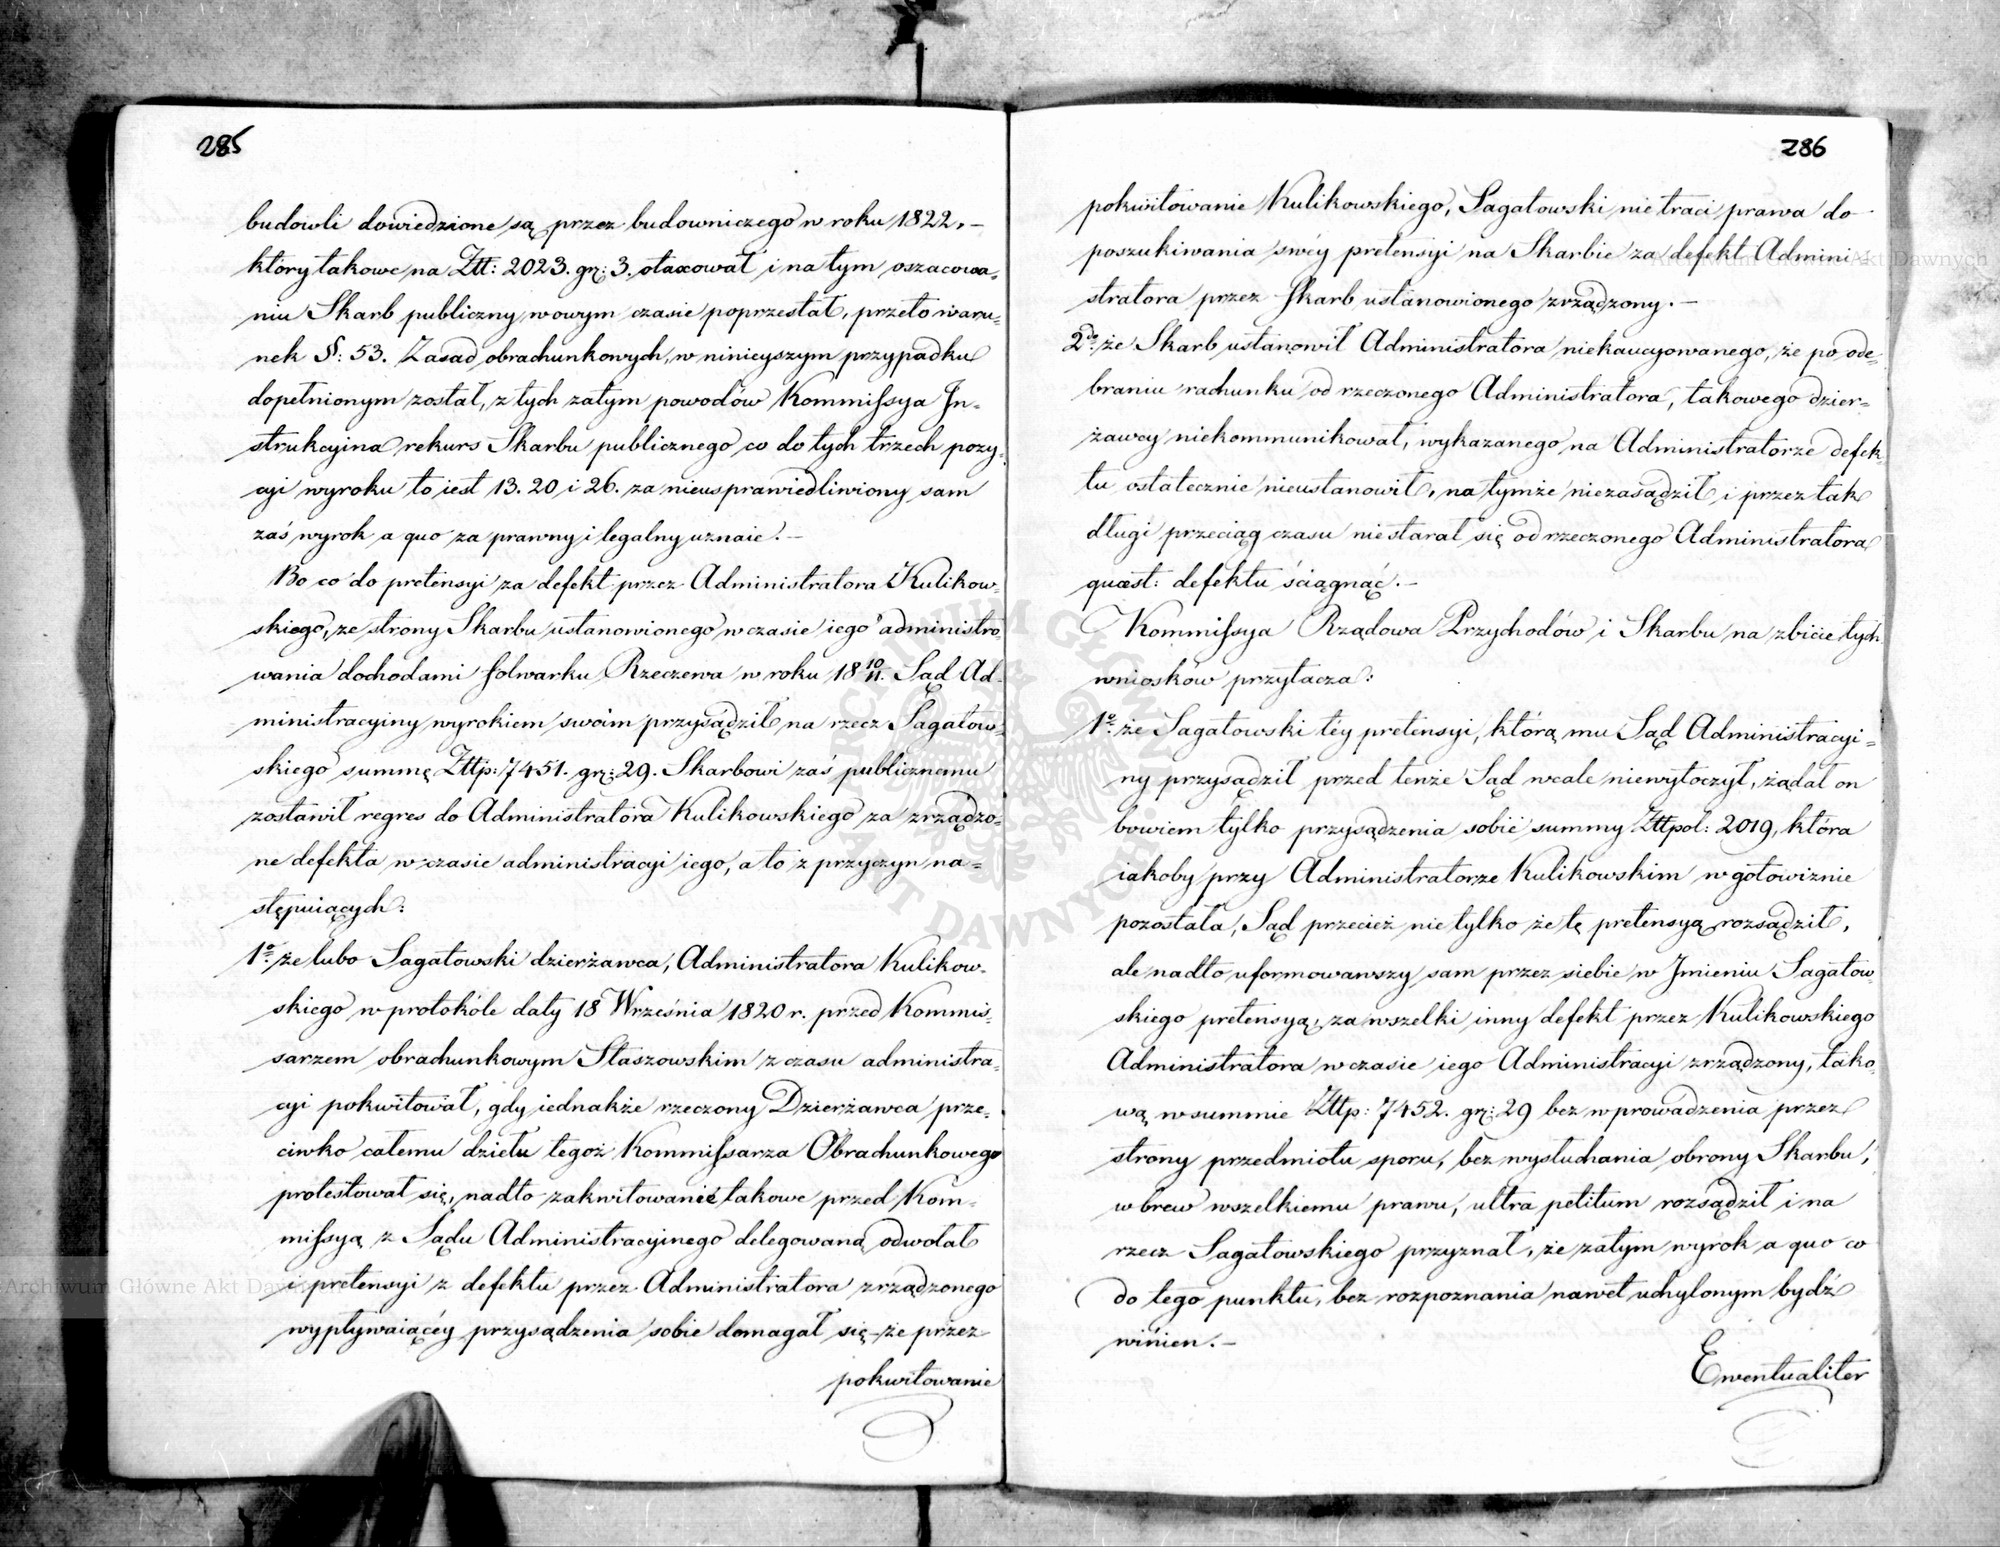 285
budowli dowiedzione są przez budowniczego w roku 1822. –
który takowe na Ztt: 2023. gr: 3. otaxował i na tym oszacowa-
niu Skarb publiczny w owym czasie poprzestał, przeto waru-
nek §: 53. Zasad obrachunkowych, w ninieyszym przypadku
dopełnionym został, z tych zatym powodów Kommissya In-
strukcyina rekurs Skarbu publicznego co do tych trzech pozy-
cyi wyroku to iest 13. 20 i 26. za nieusprawiedliwiony sam
zaś wyrok a quo za prawny i legalny uznaie. –
Bo co do pretensyi za defekt przez Administratora Kulikow-
skiego, ze strony Skarbu ustanowionego w czasie iego administro-
wania dochodami folwarku Rzeczewa w roku 18 10/11. Sąd Ad-
ministracyiny wyrokiem swoim przysądził na rzecz Sagatow-
skiego summę Zttp: 7451. gr: 29. Skarbowi zaś publicznemu
zostawił regres do Administratora Kulikowskiego za zrządzo-
ne defekta w czasie administracyi iego, a to z przyczyn na-
stępuiących:
1º. że lubo Sagatowski dzierżawca, Administratora Kulikow-
skiego w protokóle daty 18 Września 1820 r. przed Kommis-
sarzem obrachunkowym Staszowskim z czasu administra-
cyi pokwitował, gdy iednakże rzeczony Dzierżawca prze-
ciwko całemu dziełu tegoż Kommissarza Obrachunkowego
protestował się, nadto zakwitowanie takowe przed Kom-
missyą z Sądu Administracyinego delegowaną odwołał
i pretensyi z defektu przez Administratora zrządzonego
wypływaiącéy przysądzenia sobie domagał się – że przez
pokwitowanie
286
pokwitowanie Kulikowskiego, Sagatowski nie traci prawa do
poszukiwania swéy pretensyi na Skarbie za defekt Admini-
stratora przez Skarb ustanowionego zrządzony. –
2do. że Skarb ustanowił Administratora niekaucyowanego, że po ode-
braniu rachunku od rzeczonego Administratora, takowego dzier-
żawcy niekommunikował, wykazanego na Administratorze defek-
tu ostatecznie nieustanowił, na tymże niezasądził i przez tak
długi przeciąg czasu niestarał się od rzeczonego Administratora
quaest: defektu ściągnąć. –
Kommissya Rządowa Przychodów i Skarbu na zbicie tych
wniosków przytacza:
1º. że Sagatowski téy pretensyi, którą mu Sąd Administracyi-
ny przysądził przed tenże Sąd wcale niewytoczył, żądał on
bowiem tylko przysądzenia sobie summy Zttpol: 2019, która
iakoby przy Administratorze Kulikowskim w gotowiznie
pozostała, Sąd przecież nie tylko że tę pretensyą rozsądził,
ale nadto uformowawszy sam przez siebie w Imieniu Sagatow-
skiego pretensyą, za wszelki inny defekt przez Kulikowskiego
Administratora w czasie iego Administracyi zrządzony, tako-
wą w summie Zttp: 7452. gr: 29 bez wprowadzenia przez
strony przedmiotu sporu, bez wysłuchania obrony Skarbu,
wbrew wszelkiemu prawu, ultra petitum rozsądził i na
rzecz Sagatowskiego przyznał, że zatym wyrok a quo co
do tego punktu, bez rozpoznania nawet uchylonym bydź
winien. –
Ewentualiter
Archiwum Główne Akt Dawnych
Archiwum Główne Akt Dawnych
ARCHIWUM GŁÓWNE AKT DAWNYCH